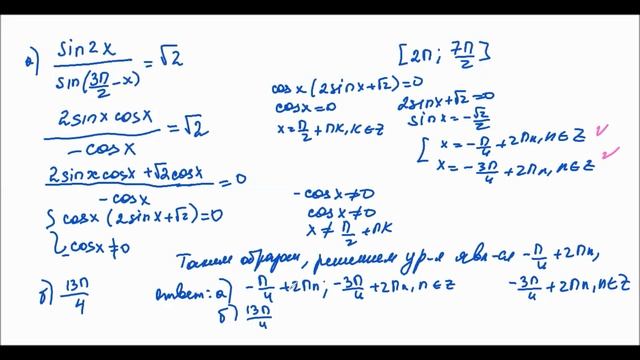 а) sin2x / sin(3П/2 - x) = √2
[2П; 7П/2]
2sinx cosx / -cosx = √2
2sinx cosx + √2cosx / -cosx = 0
{ cosx (2sinx + √2) = 0
-cosx ≠ 0
cosx (2sinx + √2) = 0
cosx = 0
x = П/2 + Пк, к ∈ Z
2sinx + √2 = 0
sinx = -√2/2
[ x = -П/4 + 2Пn, n ∈ Z ✓
x = -3П/4 + 2Пn, n ∈ Z ✓
-cosx ≠ 0
cosx ≠ 0
x ≠ П/2 + Пк
Таким образом, решением ур-я явл-ся -П/4 + 2Пn,
-3П/4 + 2Пn, n ∈ Z
б) 13П/4
ответ: а) -П/4 + 2Пn; -3П/4 + 2Пn, n ∈ Z
б) 13П/4